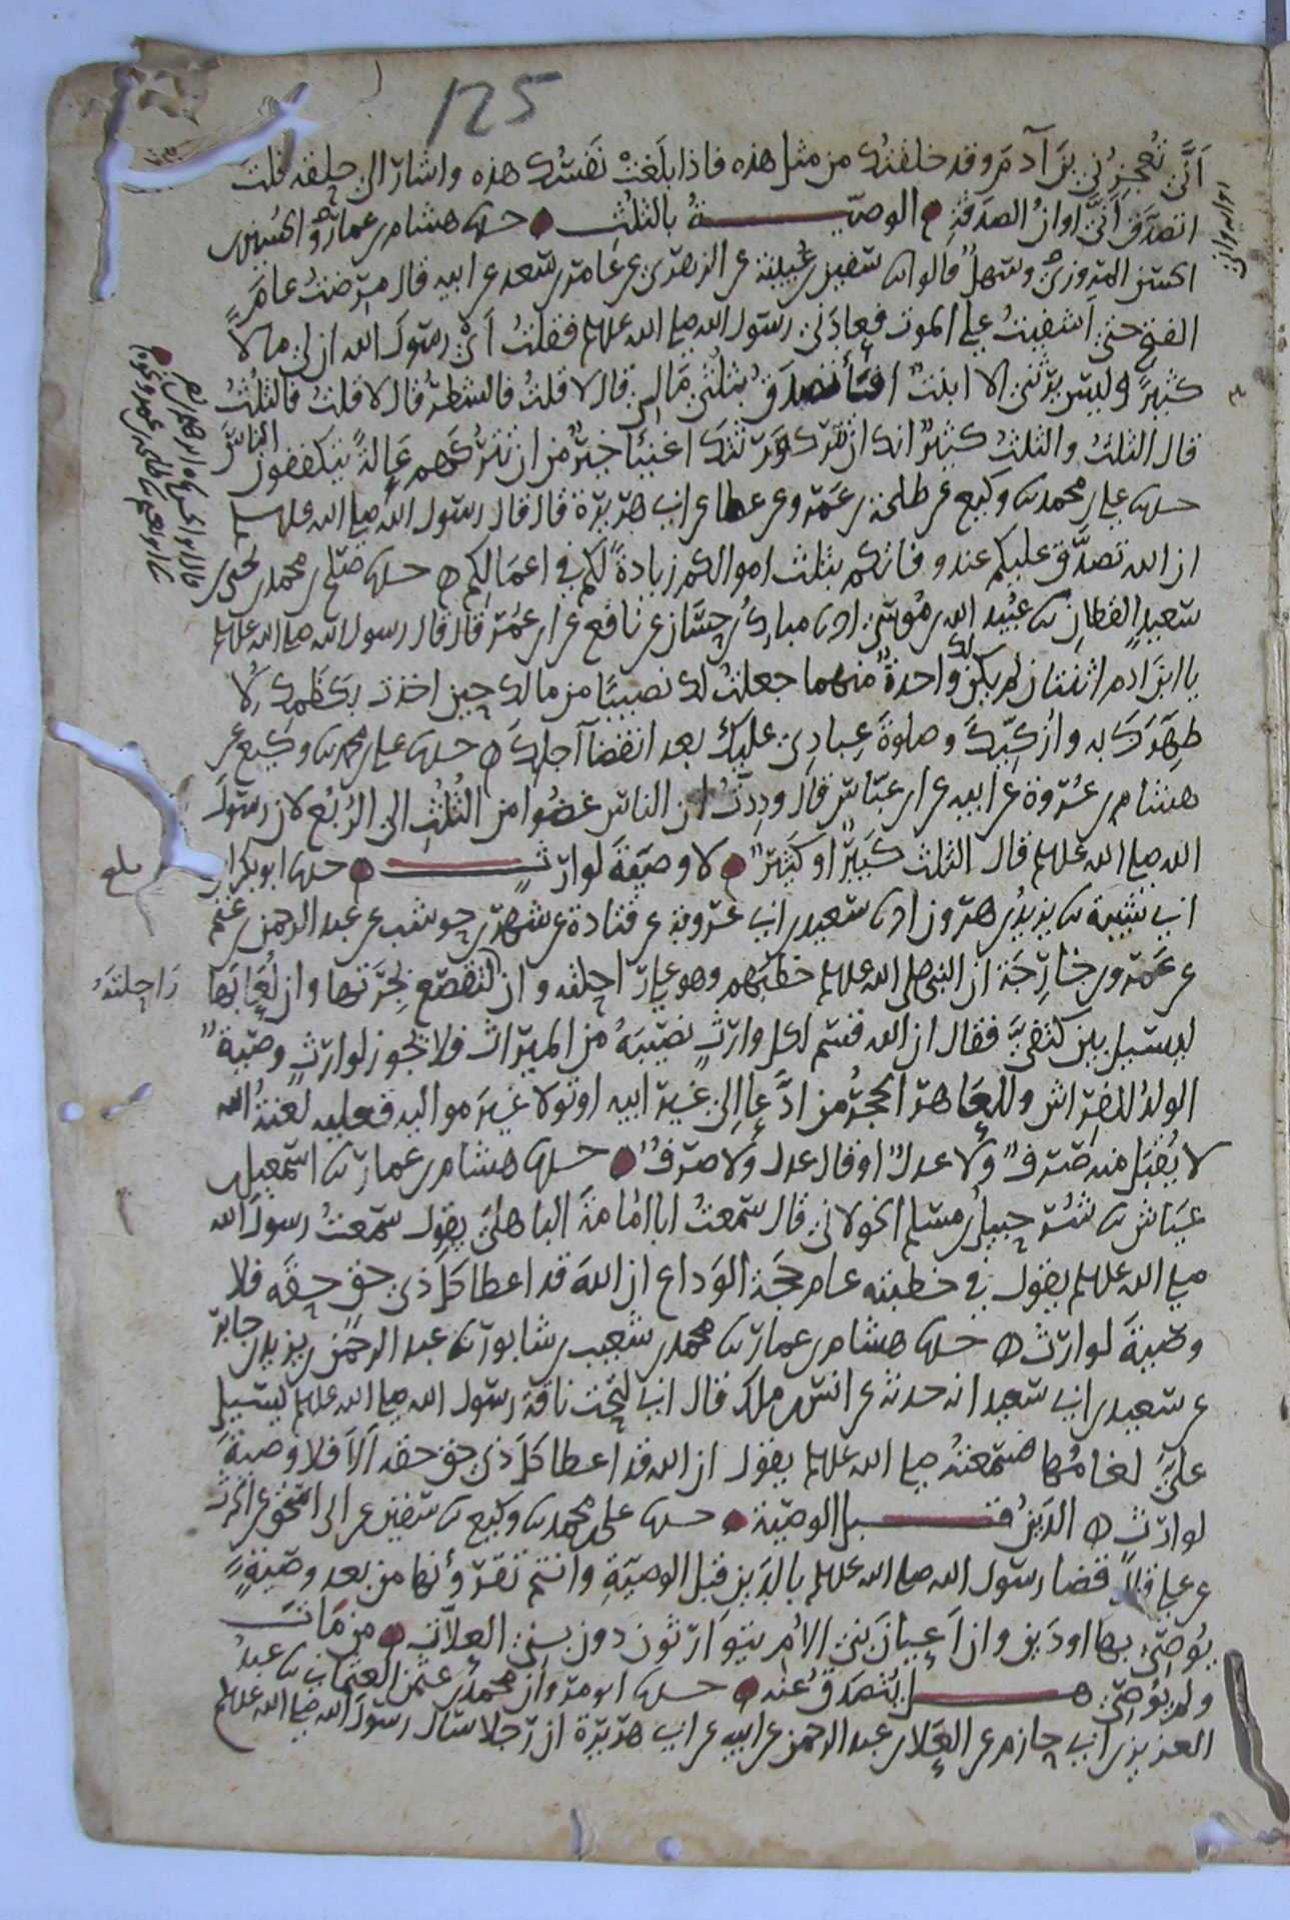 125
أنّى تُعجزُني بن آدم وقد خلقتُك من مثل هذه فاذا بلغت نفسُك هذه واشار الى حلقه قلت
اتصدّق أنّى اوانُ الصدقةِ الوصيّةُ بالثلُثِ حدثنا هشام بن عمار والحُسين بن
الحسن المروزيّ وسهلٌ قالوا ثنا سفين بن عُيينة عن الزهري عن عامر بن سعد عن ابيه قال مرضتُ عامَ
الفتح حتى اشفيتُ على الموت فعادَني رسول الله صلى الله عليه وسلم فقلتُ أيْ رسولَ الله ان لي مالا
كثيرًا وليس يرثني الا ابنتٌ افأتصدقُ بثلثَيْ مَالي قال لا قلتُ فالشطرُ قال لا قلتُ فالثلُثُ
قال الثلثُ والثلثُ كثيرٌ انك ان تترك ورثتَك اغنيَآ خيرٌ من ان تتركهم عَالةً يتكففون الناسَ
حدثنا علي بن محمد ثنا وكيع عن طلحة بن عَمرو عن عطا عن ابي هريرة قال قال رسول الله صلى الله عليه وسلم
ان الله تصدَّق عليكم عند وفاتكم بثلث اموالكم زيادةً لكم في اعمَالكم حدثنا صلح بن محمد بن يحيى بن
سعيدٍ القطان ثنا عُبيد الله بن مُوسى انا مبارك بن حسّان عن نافع عن ابن عُمَر قال قال رسول الله صلى الله عليه وسلم
يا ابنَ ادم اثنتان لم يكن لك واحدةٌ منهما جعلتُ لك نصيبًا من مالك حين اخذت بكَظَمِك لا
طهّرَكَ به وازُكيّكَ وصلوةَ عبادي عليك بعد انقضآ اجلِكَ حدثنا علي بن محمد ثنا وكيع عن
هشام بن عُروة عن ابيه عن ابن عبّاس قال ودِدتُ ان الناس غضُّوا من الثلُثِ الى الرُبُع لان رسولَ
الله صلى الله عليه وسلم قال الثلث كبيرٌ او كثيرٌ لا وصيّةَ لوارثٍ حدثنا ابو بكر بن
ابي شيبة ثنا يزيدُ بن هرون انا سعيد بن ابي عروبة عن قتادة عن شهر بن حوشب عن عبد الرحمن بن غَنْم
عن عَمرو بن خارجَة ان النبي صلى الله عليه وسلم خطبَهم وهو على راحلته وان لتقصع بجرّتها وان لُعَابَها
ليسيل بين كتفَيَّ فقال ان الله قسم لكل وارثٍ نصيبَهُ من الميراث فلا تجوز لوارثٍ وصيةٌ
الولدُ للفراش وللعَاهر الحجرُ من ادَّعا الى غير ابيه او تولا غيرَ مواليه فعليه لعنةُ الله
لا يُقبَل منه صَرفٌ ولا عدلٌ او قال عدل ولا صرفٌ حدثنا هشام بن عمار ثنا اسمعيل بن
عيّاش ثنا شُرحبيل بن مسلم الخولاني قال سمعتُ ابا امامة الباهليّ يقول سمعتُ رسولَ الله
صلى الله عليه وسلم يقول في خطبته عام حجَة الوَداع ان الله قد اعطا كل ذي حق حقَه فلا
وصيةَ لوارث حدثنا هشام بن عمار ثنا محمد بن شعيب بن شابور ثنا عبد الرحمن بن يزيد بن جابر
عن سعيد بن ابي سعيد انه حدثه عن انس بن ملك قال اني لتحت ناقة رسول الله صلى الله عليه وسلم ليسيل
عليَّ لغامُها فسمعتُه صلى الله عليه وسلم يقول ان الله قد اعطا كل ذي حق حقه ألا فلا وصيةَ
لوارث الدينُ قبل الوصيّة حدثنا علي بن محمد ثنا وكيع ثنا سفين عن ابي اسحق عن الحرث
عن علي قال قضا رسول الله صلى الله عليه وسلم بالدين قبل الوصيّةِ وانتم تقرؤنها من بعد وصيةٍ
يُوصي بها او دين وان اَعيانَ بني الام يتوارثون دون بني العلّات من مات
ولم يُوصي هل يُتصدقُ عنه حدثنا ابو مروان محمد بن عثمن العثماني ثنا عبدُ
العزيز بن ابي حازم عن العَلا بن عبد الرحمن عن ابيه عن ابي هريرة ان رجلا سال رسولَ الله صلى الله عليه وسلم
بلغ
رَاحِلتَهُ